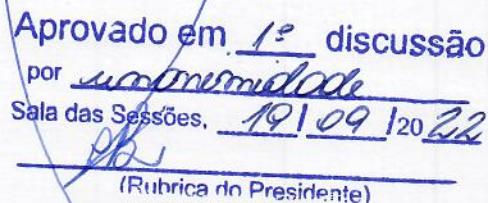 Aprovado em 1ª discussão
por unanimidade
Sala das Sessões, 19 / 09 / 20 22
(Rubrica do Presidente)